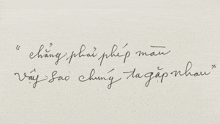 “chẳng phải phép màu
vậy sao chúng ta gặp nhau”